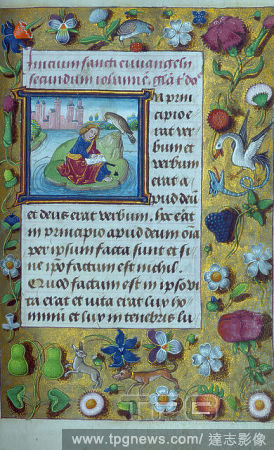 Inicium sancti euuangelii
secundum iohannē. gl̄a t̄ do
a prin
cipio e
rat ver
bum et
verbum
erat a
pud deū
et deus erat verbum. Hoc erat
in principio apud deum oīa
per ipsum facta sunt et si
ne ipō factum est nichil.
Quod factum est in ipso vi
ta erat et vita erat lux ho
minū et lux in tenebris lu
TPG
www.tpgnews.com/ 達志影像